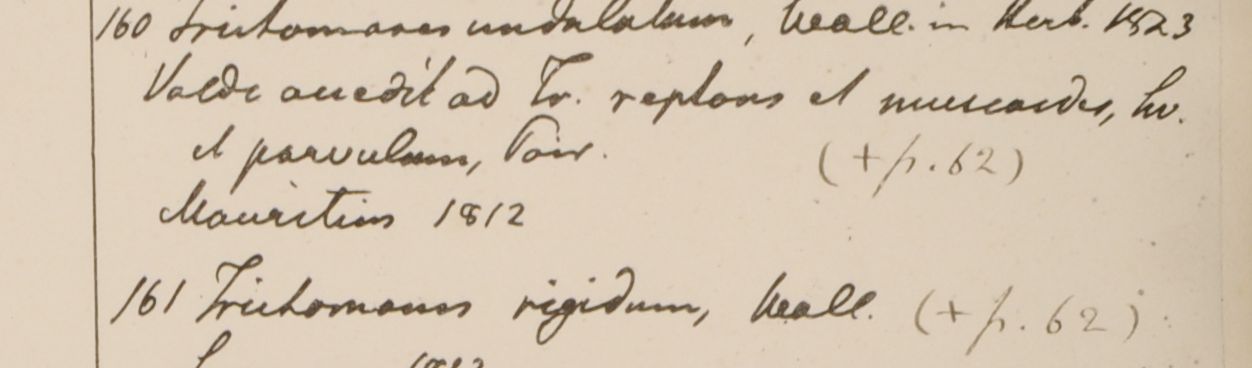 160 Trichomanes undulatum, Wall. in Herb. 1823
Valde accedit ad Tr. reptans et muscoides, Sw.
et parvulum, Poir. (+ p. 62)
Mauritius 1812
161 Trichomanes rigidum, Wall. (+ p. 62)